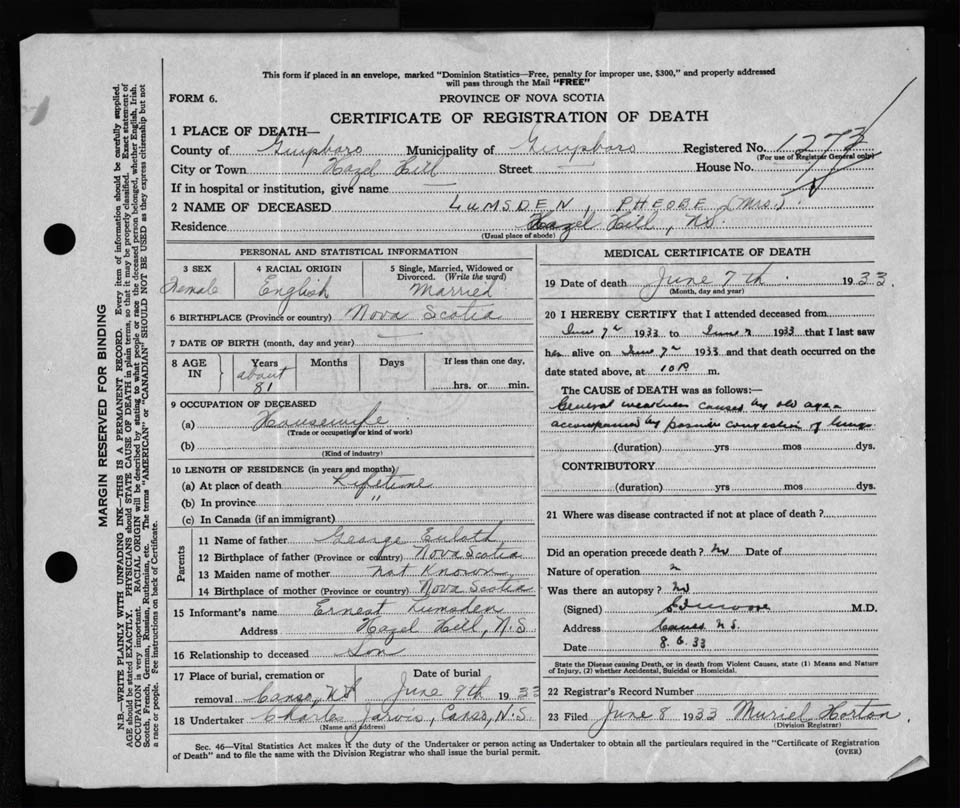 This form if placed in an envelope, marked "Dominion Statistics—Free, penalty for improper use, $300," and properly addressed
will pass through the Mail "FREE"
FORM 6.
PROVINCE OF NOVA SCOTIA
CERTIFICATE OF REGISTRATION OF DEATH
1 PLACE OF DEATH—
County of Guysboro Municipality of Guysboro Registered No. 1273
(For use of Registrar General only)
City or Town Hazel Hill Street — House No.
If in hospital or institution, give name —
2 NAME OF DECEASED LUMSDEN, PHEOBE (Mrs.)
Residence Hazel Hill, N.S.
(Usual place of abode)
PERSONAL AND STATISTICAL INFORMATION
3 SEX 4 RACIAL ORIGIN 5 Single, Married, Widowed or
Divorced. (Write the word)
Female English Married
6 BIRTHPLACE (Province or country) Nova Scotia
7 DATE OF BIRTH (month, day and year) —
8 AGE IN Years Months Days If less than one day,
about
81 hrs. or min.
9 OCCUPATION OF DECEASED
(a) Housewife
(Trade or occupation or kind of work)
(b)
(Kind of industry)
10 LENGTH OF RESIDENCE (in years and months)
(a) At place of death Lifetime
(b) In province "
(c) In Canada (if an immigrant)
Parents
11 Name of father George Euloth
12 Birthplace of father (Province or country) Nova Scotia
13 Maiden name of mother Not Known
14 Birthplace of mother (Province or country) Nova Scotia
15 Informant's name Ernest Lumsden
Address Hazel Hill, N.S.
16 Relationship to deceased Son
17 Place of burial, cremation or Date of burial
removal Canso, N.S. June 9th 1933
18 Undertaker Charles Jarvis, Canso, N.S.
(Name and address)
MEDICAL CERTIFICATE OF DEATH
19 Date of death June 7th 1933.
(Month, day and year)
20 I HEREBY CERTIFY that I attended deceased from
June 7th 1933 to June 7 1933 that I last saw
her alive on June 7th 1933 and that death occurred on the
date stated above, at 10 P m.
The CAUSE OF DEATH was as follows:—
General weakness caused by old age
accompanied by passive congestion of lungs
(duration) yrs mos dys.
CONTRIBUTORY
(duration) yrs mos dys.
21 Where was disease contracted if not at place of death?
Did an operation precede death? No Date of
Nature of operation
Was there an autopsy? No
(Signed) M.D.
Address Canso N.S.
Date 8.6.33
State the Disease causing Death, or in death from Violent Causes, state (1) Means and Nature
of Injury, (2) whether Accidental, Suicidal or Homicidal.
22 Registrar's Record Number
23 Filed June 8 1933 Muriel Horton.
(Division Registrar)
Sec. 46—Vital Statistics Act makes it the duty of the Undertaker or person acting as Undertaker to obtain all the particulars required in the "Certificate of Registration
of Death" and to file the same with the Division Registrar who shall issue the burial permit. (OVER)
MARGIN RESERVED FOR BINDING
N.B.—WRITE PLAINLY WITH UNFADING INK—THIS IS A PERMANENT RECORD. Every item of information should be carefully supplied.
AGE should be stated EXACTLY. PHYSICIANS should STATE CAUSE OF DEATH in plain terms, so that it may be properly classified. Exact statement of
OCCUPATION is very important. RACIAL ORIGIN will be described by stating to what people or race the deceased person belonged, whether English, Irish,
Scotch, French, German, Russian, Ruthenian, etc. The terms "AMERICAN" or "CANADIAN" SHOULD NOT BE USED as they express citizenship but not
a race or people. Fee instructions on back of Certificate.